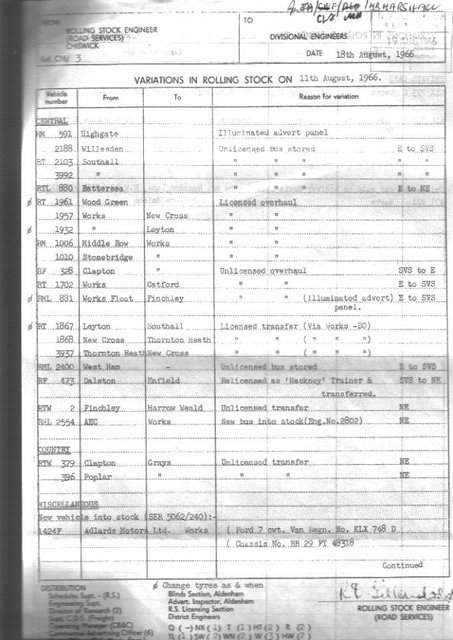 FROM
ROLLING STOCK ENGINEER
(ROAD SERVICES)
CHISWICK
TO
DIVISIONAL ENGINEERS
DATE 18th August, 1966
VARIATIONS IN ROLLING STOCK ON 11th August, 1966.
Vehicle number From To Reason for variation
CENTRAL
RM 591 Highgate Illuminated advert panel
2188 Willesden Unlicensed bus stored E to SVS
RT 2103 Southall " " " " "
3992 " " " " " "
RTL 880 Battersea " " " E to NE
ø RT 1961 Wood Green Licensed overhaul
1957 Works New Cross " "
ø 1932 " Leyton " "
RM 1006 Middle Row Works " "
1010 Stonebridge " " "
RF 328 Clapton " Unlicensed overhaul SVS to E
RT 1702 Works Catford " " E to SVS
ø RML 881 Works Float Finchley " " (Illuminated advert) E to SVS
panel.
ø RT 1867 Leyton Southall Licensed transfer (Via Works -BO)
1868 New Cross Thornton Heath " " ( " " " )
3937 Thornton Heath New Cross " " ( " " " )
RML 2400 West Ham - Unlicensed bus stored E to SVS
RF 473 Dalston Enfield Relicensed as 'Hackney' Trainer & SVS to NE
transferred.
RTW 2 Finchley Harrow Weald Unlicensed transfer NE
RML 2554 AEC Works New bus into stock(Eng.No.2802) NE
COUNTRY
RTW 379 Clapton Grays Unlicensed transfer NE
396 Poplar " " " NE
MISCELLANEOUS
New vehicle into stock (SER 5062/240):-
1424F Adlards Motors Ltd. Works ( Ford 7 cwt. Van Regn. No. KLX 748 D
( Chassis No. BB 29 FT 48318
Continued
DISTRIBUTION
Schedules Supt. - (R.S.)
Engineering Supt.
Director of Research (2)
Supt. C.D.S. (Freight)
Operating Manager (CB&C)
Commercial Advertising Officer (6)
ø Change tyres as & when
Blinds Section, Aldenham
Advert. Inspector, Aldenham
R.S. Licensing Section
District Engineers
Q (-) NX (1) T (1) HT (2) R (2)
TL (1) SW (2) WN (2) W (3) HW (2)
ROLLING STOCK ENGINEER
(ROAD SERVICES)